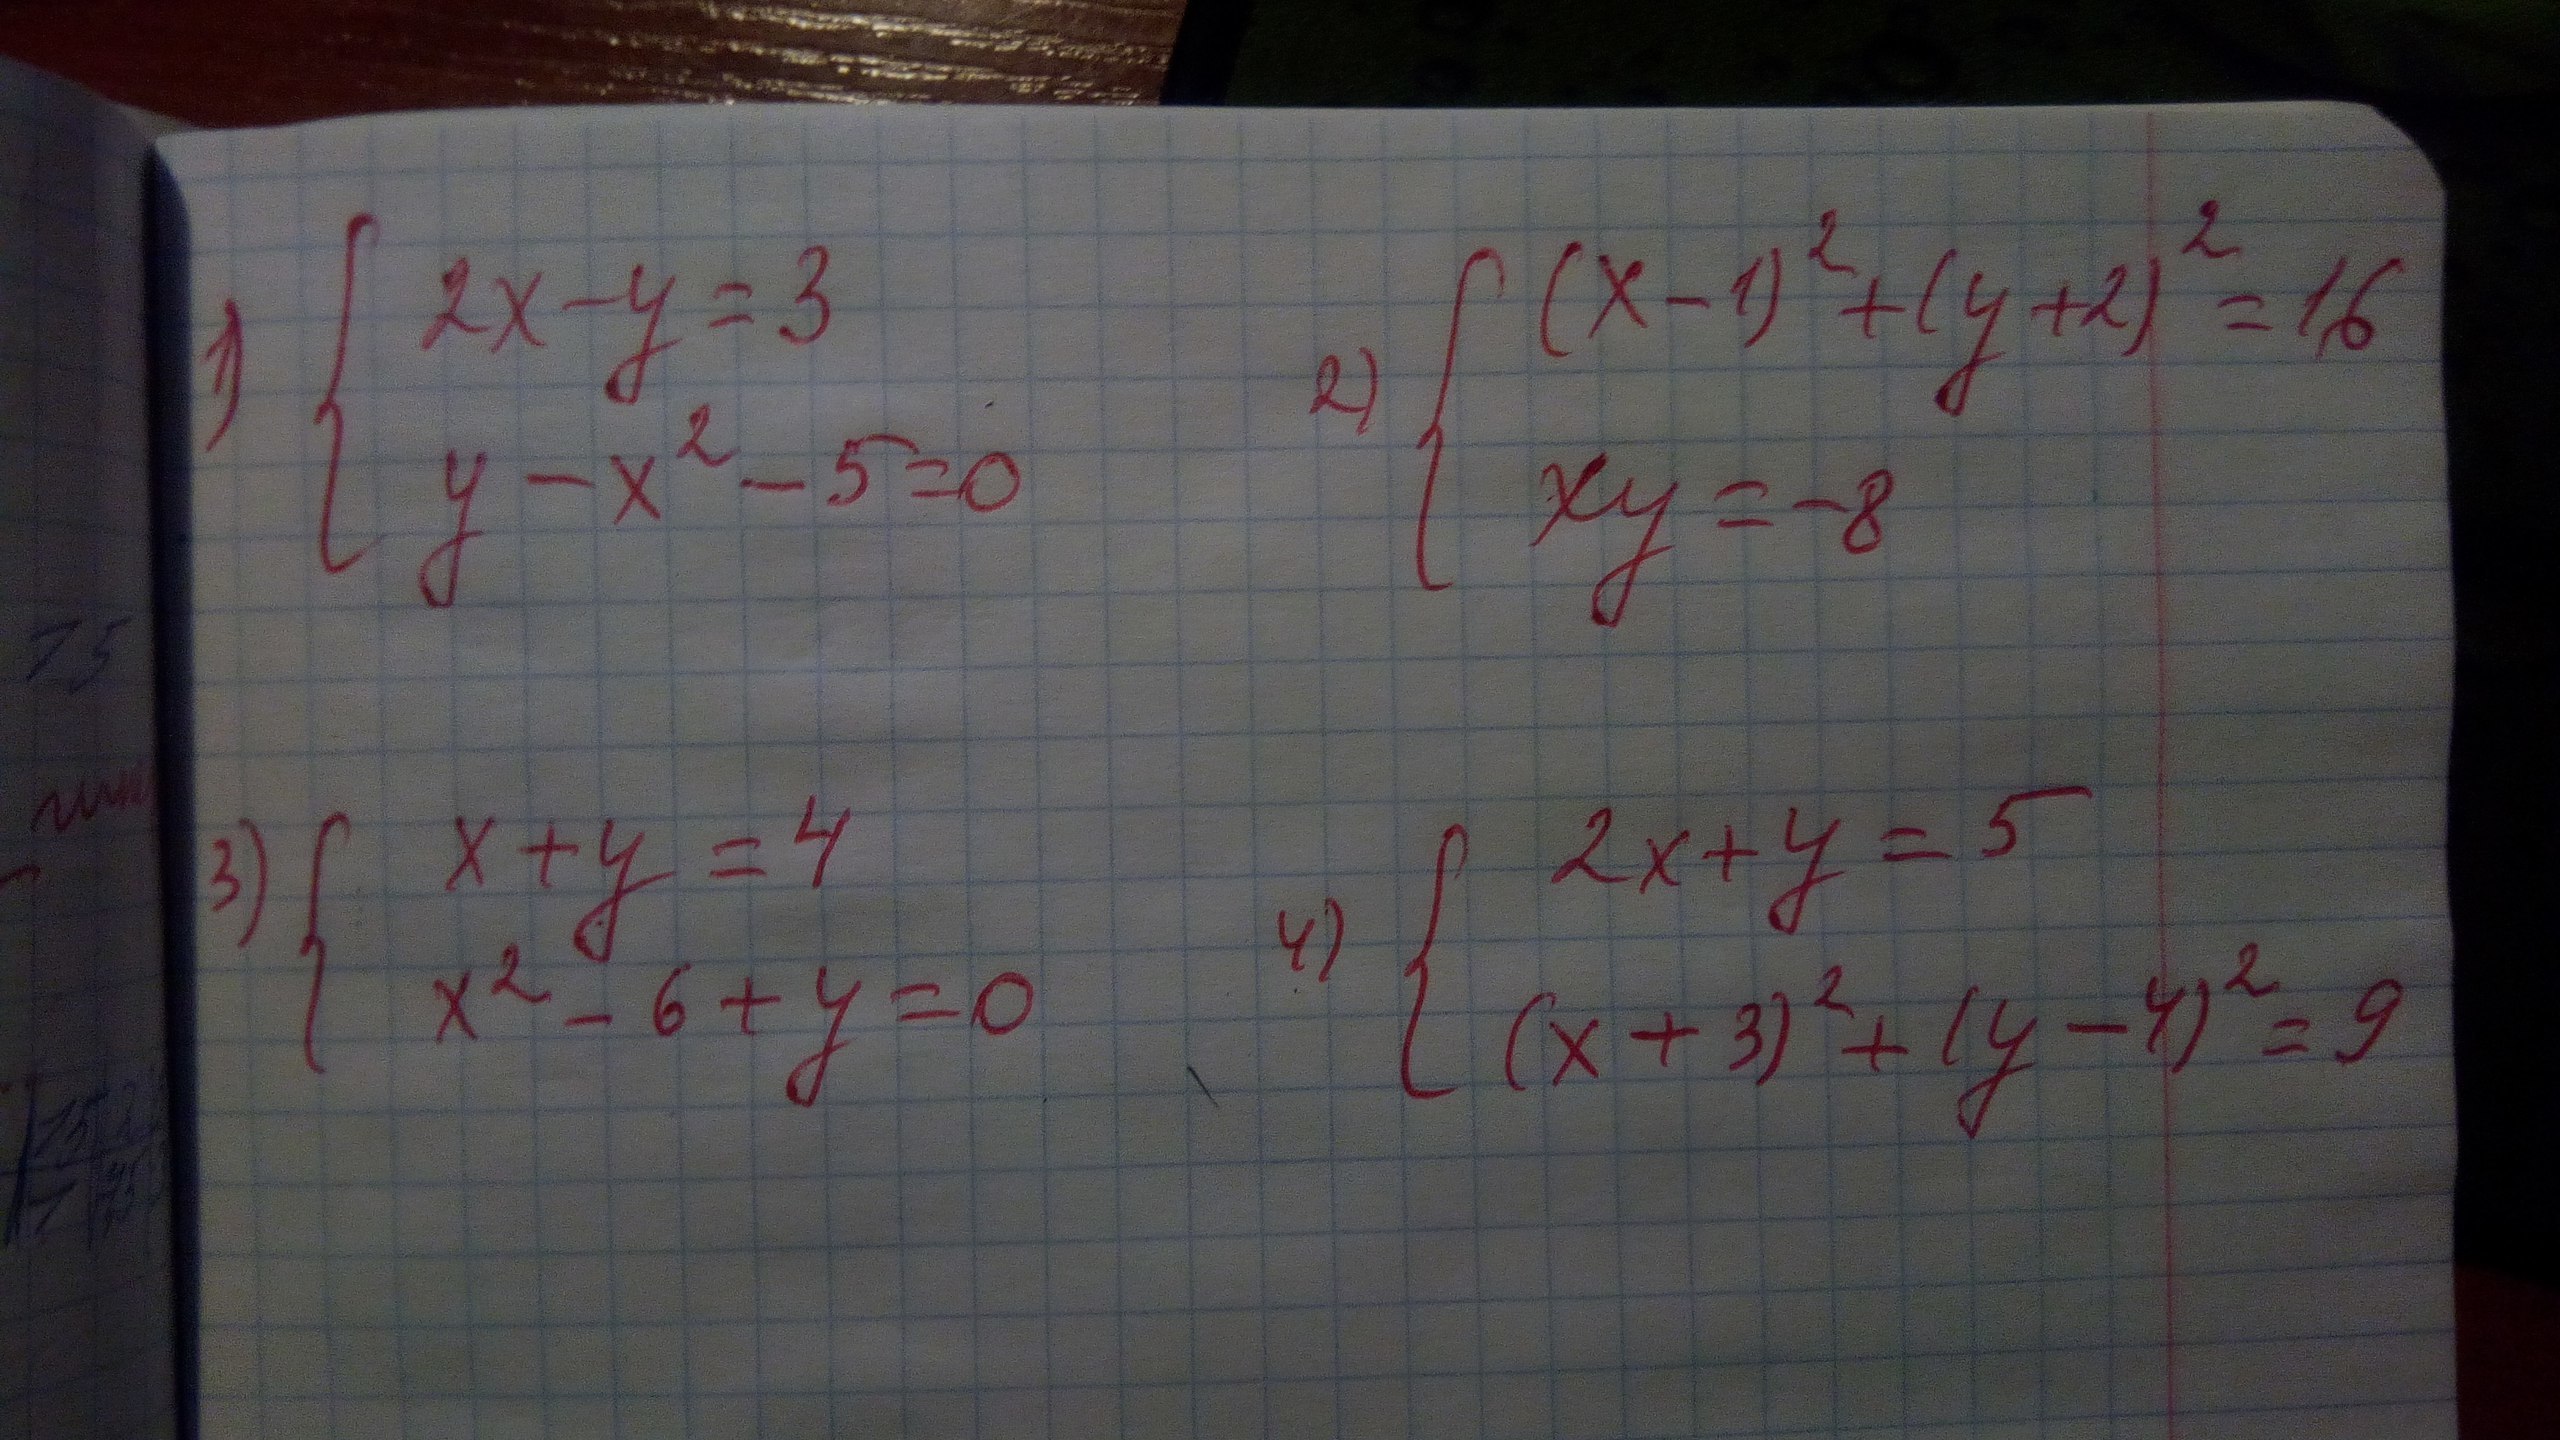 1) { 2x-y=3
y-x²-5=0
2) { (x-1)²+(y+2)²=16
xy=-8
3) { x+y=4
x²-6+y=0
4) { 2x+y=5
(x+3)²+(y-4)²=9
75